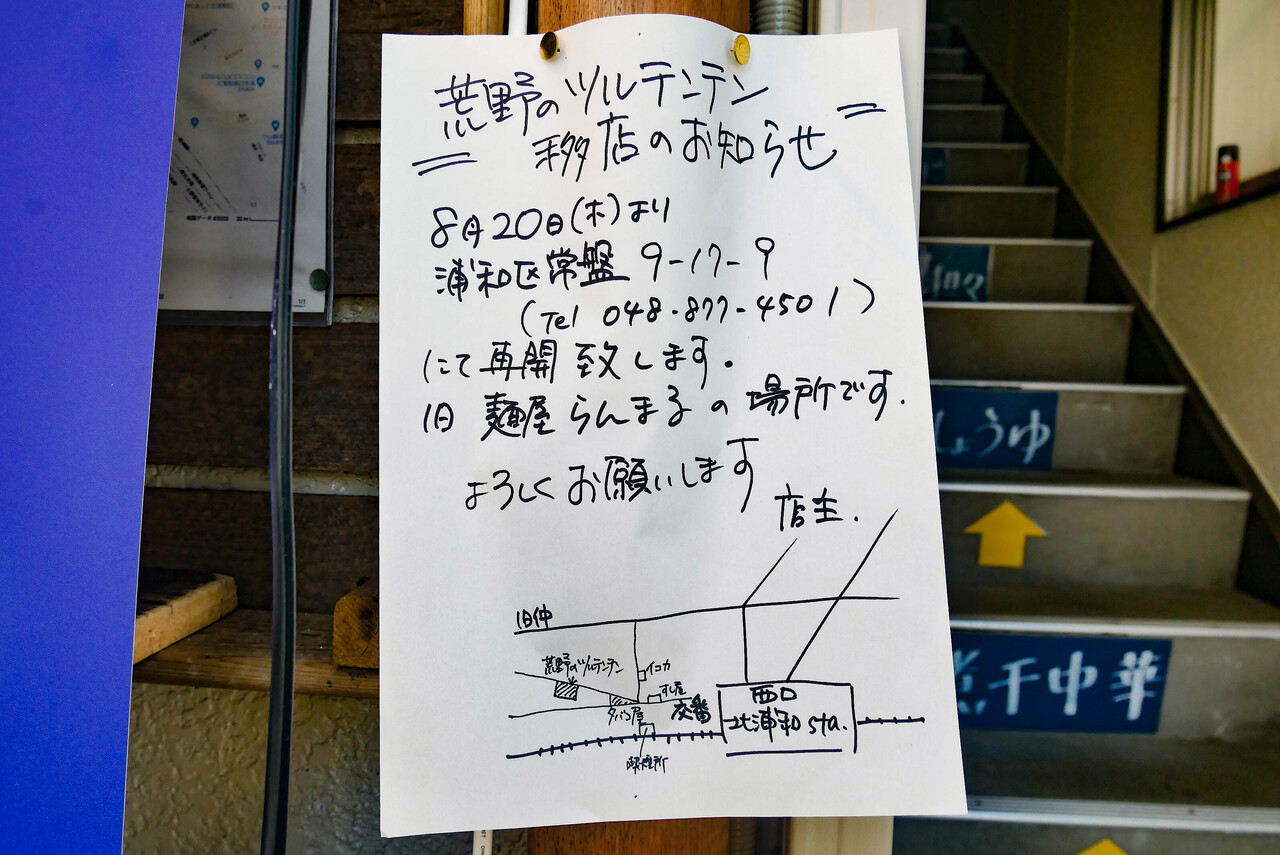 荒野のツルテンテン
= 移店のお知らせ =
8月20日(木)より
浦和区常盤 9-17-9
(Tel 048-877-4501)
にて再開致します.
旧 麺屋らんまるの場所です.
よろしくお願いします
店主.
旧仲
荒野のツルテンテン
イコカ
すし屋
タバコ屋
交番
西口
北浦和 sta.
喫煙所
しょうゆ
煮干中華
地図データ
1/1